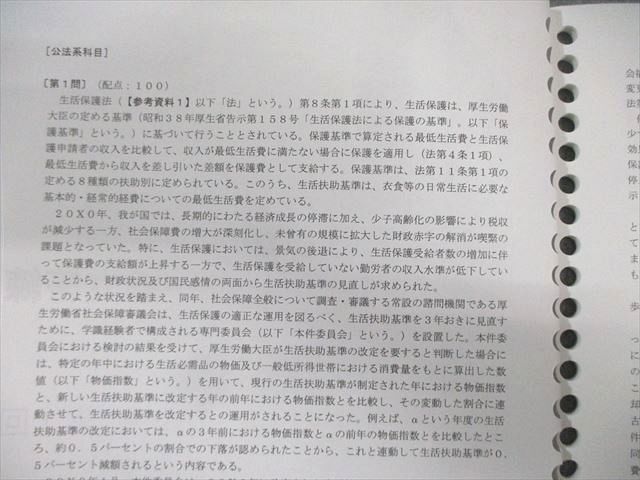 ［公法系科目］
［第１問］（配点：１００）
生活保護法（【参考資料１】以下「法」という。）第８条第１項により、生活保護は、厚生労働
大臣の定める基準（昭和３８年厚生省告示第１５８号「生活保護法による保護の基準」。以下「保
護基準」という。）に基づいて行うこととされている。保護基準で算定される最低生活費と生活保
護申請者の収入を比較して、収入が最低生活費に満たない場合に保護を適用し（法第４条１項）、
最低生活費から収入を差し引いた差額を保護費として支給する。保護基準は、法第１１条第１項の
定める８種類の扶助別に定められている。このうち、生活扶助基準は、衣食等の日常生活に必要な
基本的・経常的経費についての最低生活費を定めている。
２０Ｘ０年、我が国では、長期的にわたる経済成長の停滞に加え、少子高齢化の影響により税収
が減少する一方、社会保障費の増大が深刻化し、未曾有の規模に拡大した財政赤字の解消が喫緊の
課題となっていた。特に、生活保護においては、景気の後退により、生活保護受給者数の増加に伴
って保護費の支給額が上昇する一方で、生活保護を受給していない勤労者の収入水準が低下してい
ることから、財政状況及び国民感情の両面から生活扶助基準の見直しが求められた。
このような状況を踏まえ、同年、社会保障全般について調査・審議する常設の諮問機関である厚
生労働省社会保障審議会は、生活保護の適正な運用を図るべく、生活扶助基準を３年おきに見直す
ために、学識経験者で構成される専門委員会（以下「本件委員会」という。）を設置した。本件委
員会における検討の結果を受けて、厚生労働大臣が生活扶助基準の改定を要すると判断した場合に
は、特定の年中における生活必需品の物価及び一般低所得世帯における消費量をもとに算出した数
値（以下「物価指数」という。）を用いて、現行の生活扶助基準が制定された年における物価指数
と、新しい生活扶助基準に改定する年の前年における物価指数とを比較し、その変動した割合に連
動させて、生活扶助基準を改定するとの運用がされることになった。例えば、αという年度の生活
扶助基準の改定においては、αの３年前における物価指数とαの前年の物価指数とを比較したとこ
ろ、約０．５パーセントの割合での下落が認められたことから、これと連動して生活扶助基準が０．
５パーセント減額されるという内容である。